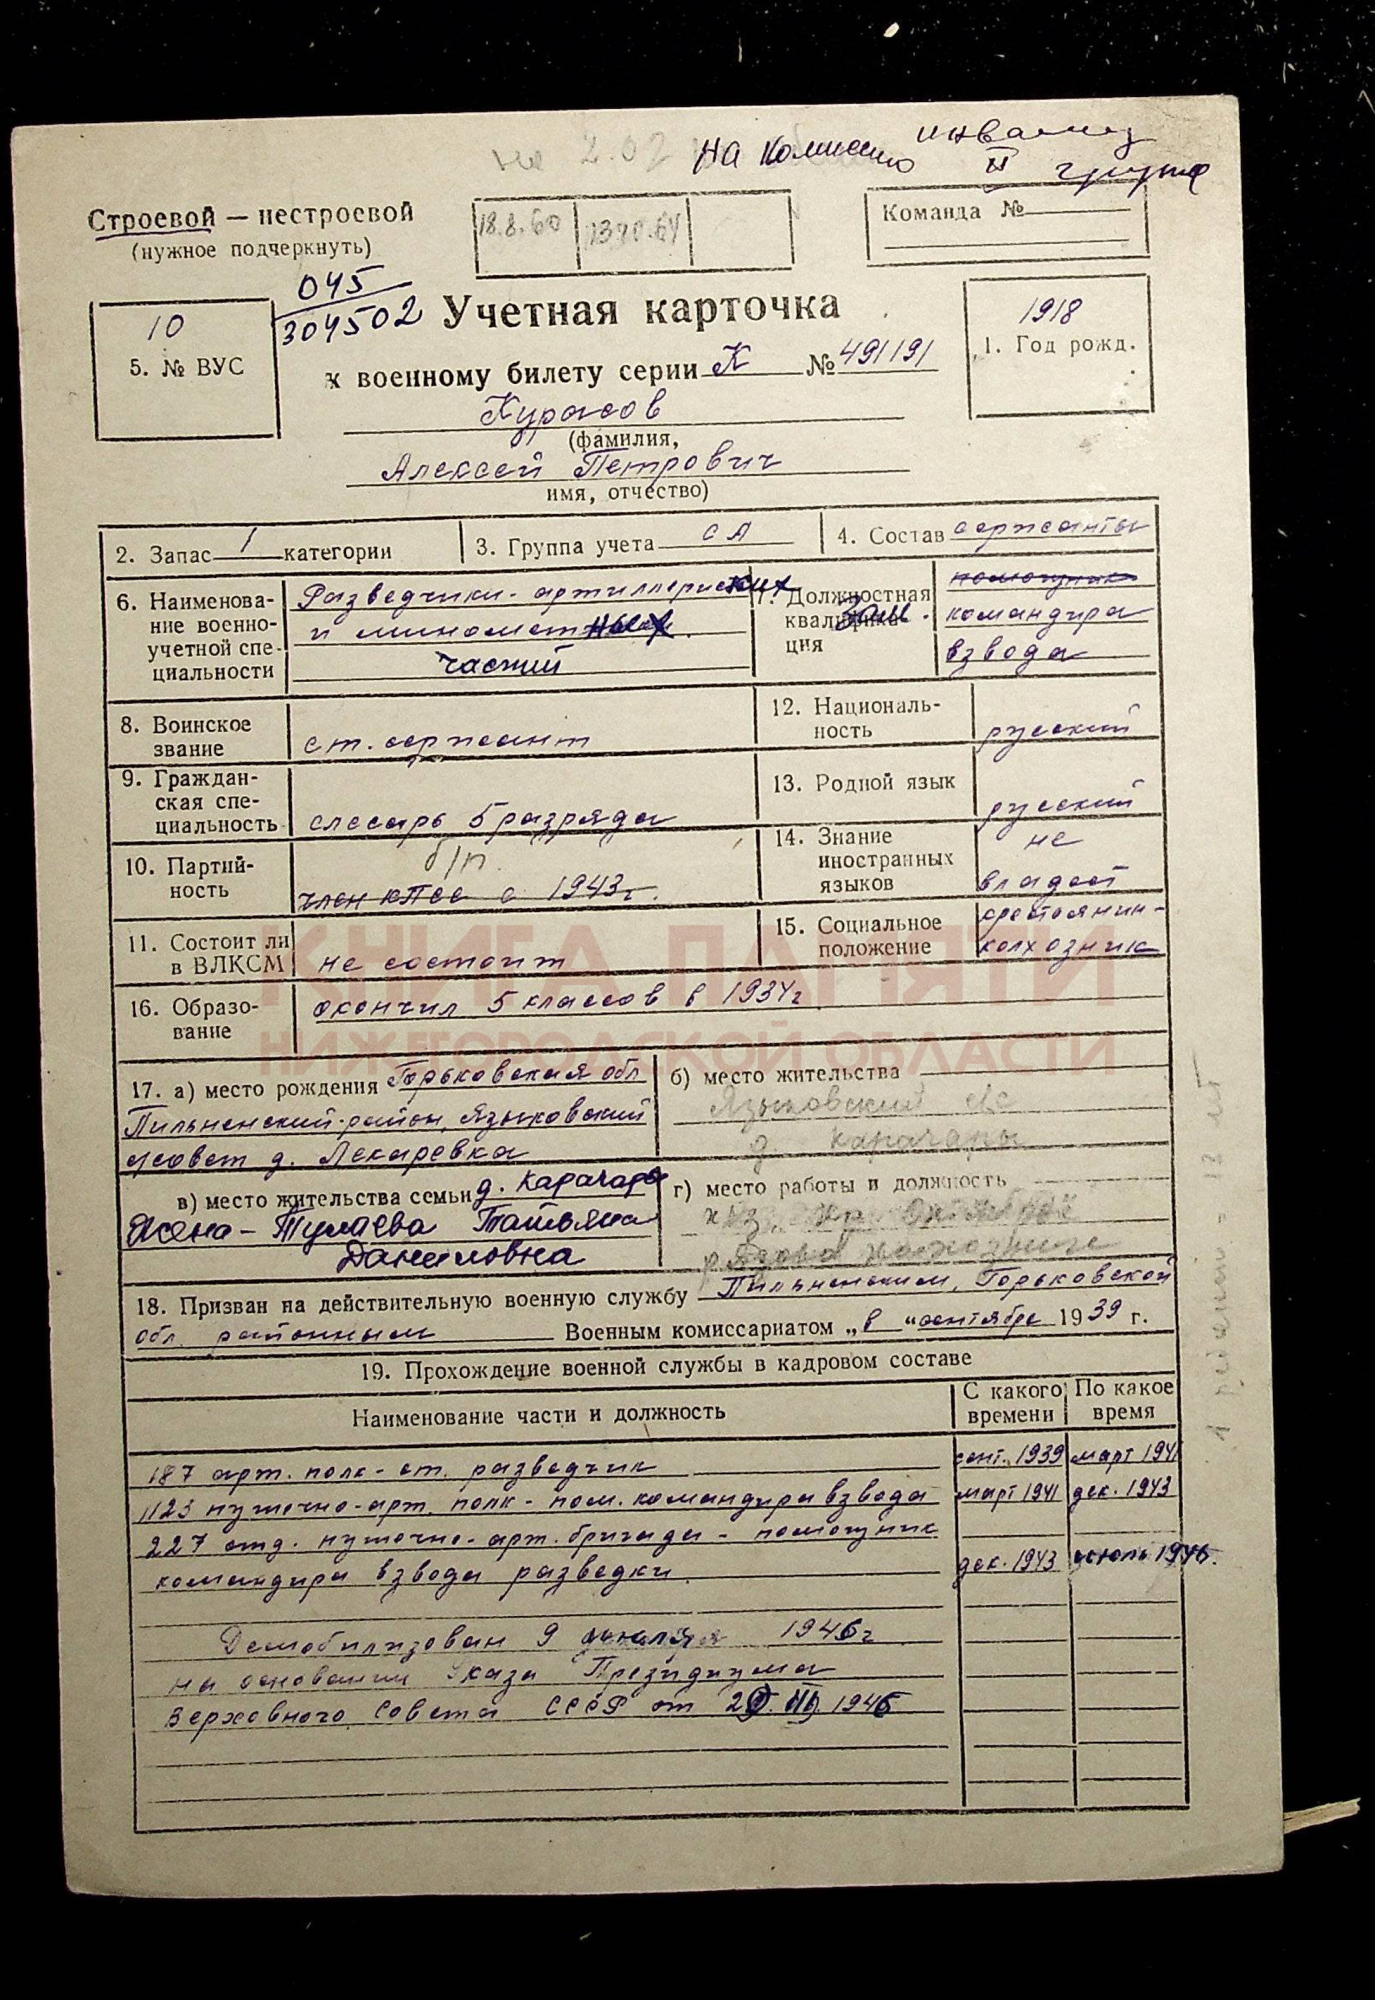 на комиссию инвалид
II группа
Строевой — нестроевой
(нужное подчеркнуть)
18.8.60
Команда №
045
304502
10
5. № ВУС
Учетная карточка
1918
1. Год рожд.
к военному билету серии К № 491191
Курасов
(фамилия,
Алексей Петрович
имя, отчество)
2. Запас 1 категории
3. Группа учета СА
4. Состав сержанты
6. Наименова-
ние военно-
учетной спе-
циальности
Разведчики-артиллерийских
и минометных
частей
7. Должностная
квалифика-
ция
помощник
Зам. командира
взвода
8. Воинское
звание
ст. сержант
12. Националь-
ность
русский
9. Граждан-
ская спе-
циальность
слесарь 5 разряда
13. Родной язык
русский
10. Партий-
ность
б/п.
член КПСС с 1943 г.
14. Знание
иностранных
языков
не
владеет
11. Состоит ли
в ВЛКСМ
не состоит
15. Социальное
положение
крестьянин-
колхозник
16. Образо-
вание
окончил 5 классов в 1934 г
КНИГА ПАМЯТИ
НИЖЕГОРОДСКОЙ ОБЛАСТИ
17. а) место рождения Горьковская обл
Пильненский район, Языковский
с/совет д. Лекаревка
б) место жительства
Языковский с/с
д. Карачары
в) место жительства семьи д. Карачары
Жена - Тулаева Татьяна
Даниловна
г) место работы и должность
18. Призван на действительную военную службу Пильненским, Горьковской
обл. районным Военным комиссариатом „в“ сентябре 1939 г.
19. Прохождение военной службы в кадровом составе
Наименование части и должность
С какого
времени
По какое
время
187 арт. полк - ст. разведчик сент. 1939 март 1941
1123 пушечно-арт. полк - пом. командира взвода март 1941 дек. 1943
227 отд. пушечно-арт. бригада - помощник
командира взвода разведки дек. 1943 июль 1946.
Демобилизован 9 июля 1946 г
на основании Указа Президиума
Верховного Совета СССР от 1946